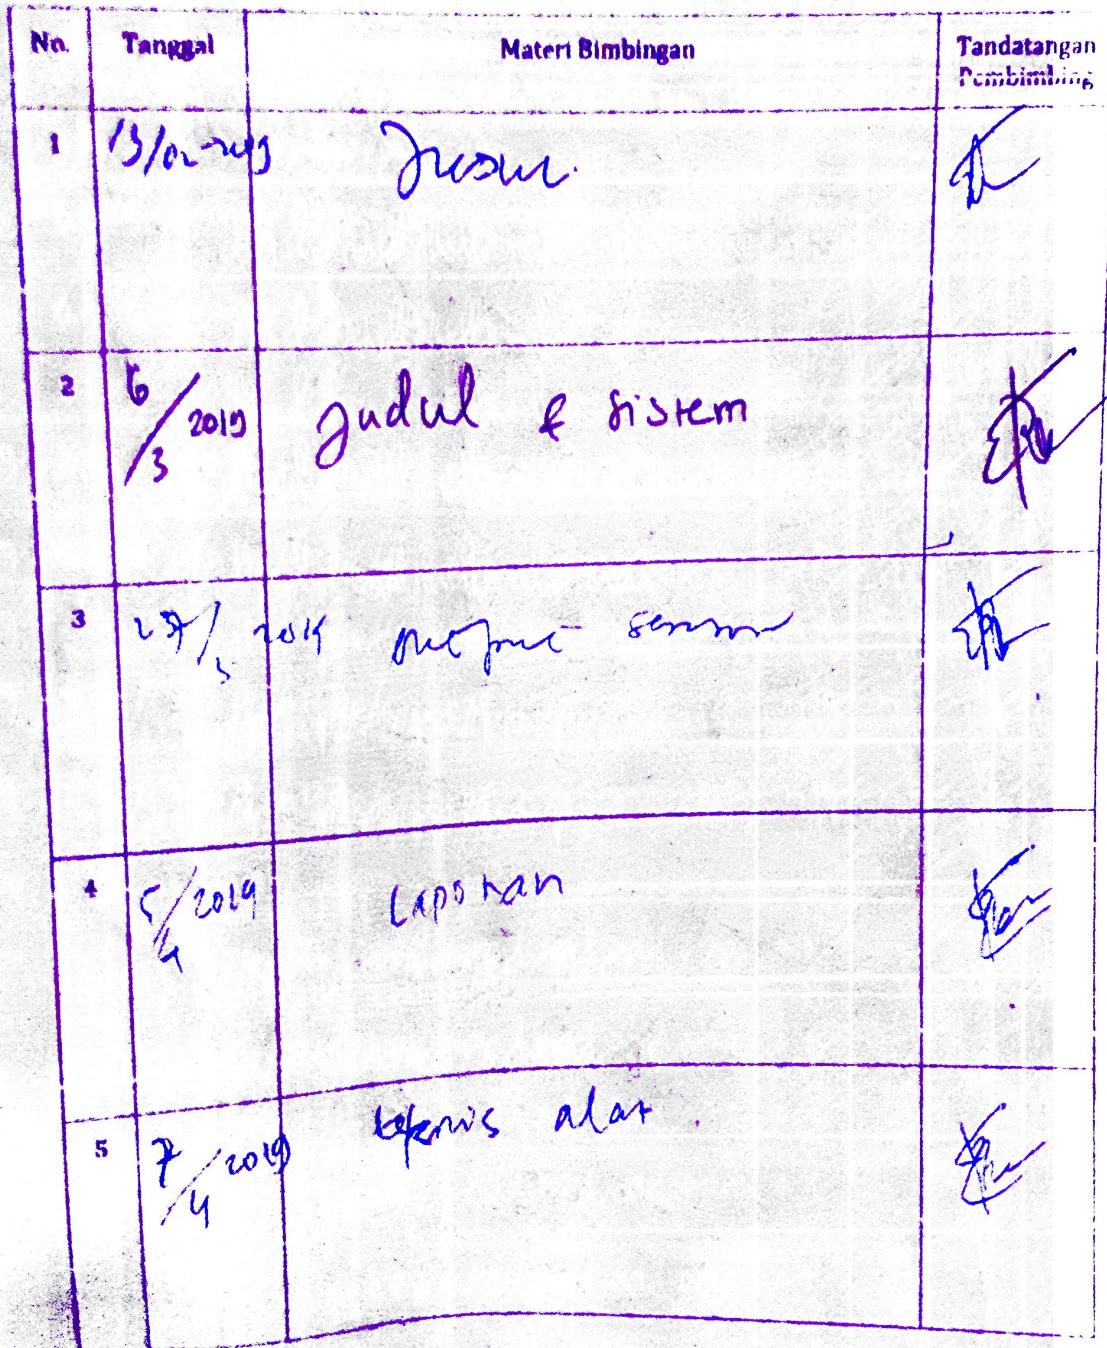 No. Tanggal Materi Bimbingan Tandatangan Pembimbing
1 13/02-2019
2 6/3 2019 Judul & sistem
3 27/3 2019 output sensor
4 5/4 2019 Laporan
5 7/4 2019 teknis alat.